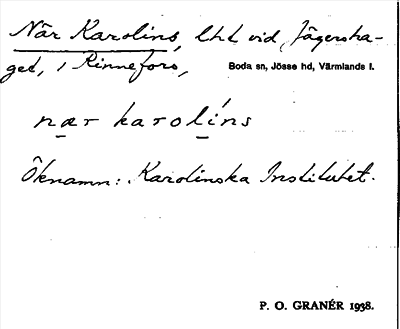 När Karolins, lht vid Jägersha-
get, i Rinnefors, Boda sn, Jösse hd, Värmlands l.
nær karolíns
Öknamn: Karolinska Institutet.
P. O. GRANÉR 1938.